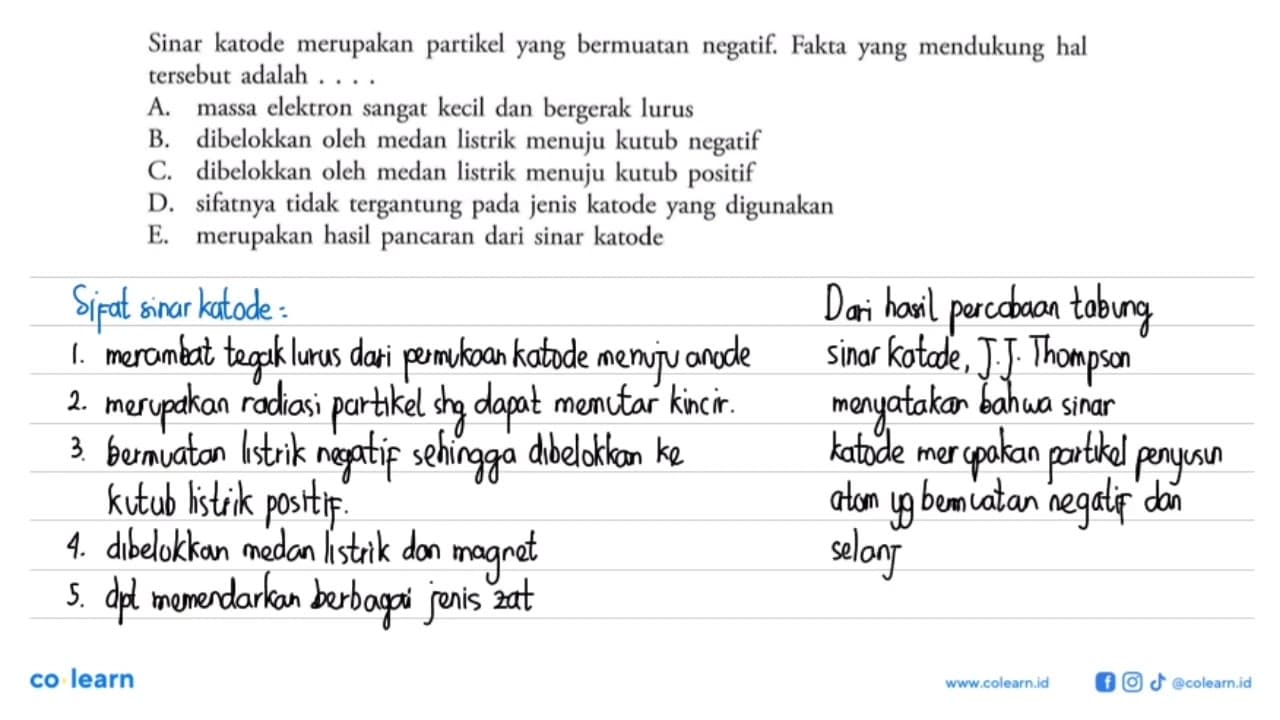 Sinar katode merupakan partikel yang bermuatan negatif. Fakta yang mendukung hal
tersebut adalah . . . .
A. massa elektron sangat kecil dan bergerak lurus
B. dibelokkan oleh medan listrik menuju kutub negatif
C. dibelokkan oleh medan listrik menuju kutub positif
D. sifatnya tidak tergantung pada jenis katode yang digunakan
E. merupakan hasil pancaran dari sinar katode
Sifat sinar katode :
1. merambat tegak lurus dari permukaan katode menuju anode
2. merupakan radiasi partikel shg dapat memutar kincir.
3. bermuatan listrik negatif sehingga dibelokkan ke
kutub listrik positif.
4. dibelokkan medan listrik dan magnet
5. dpt memendarkan berbagai jenis zat
Dari hasil percobaan tabung
sinar katode, J.J. Thompson
menyatakan bahwa sinar
katode merupakan partikel penyusun
atom yg bermuatan negatif dan
selanj
co learn
www.colearn.id
@colearn.id